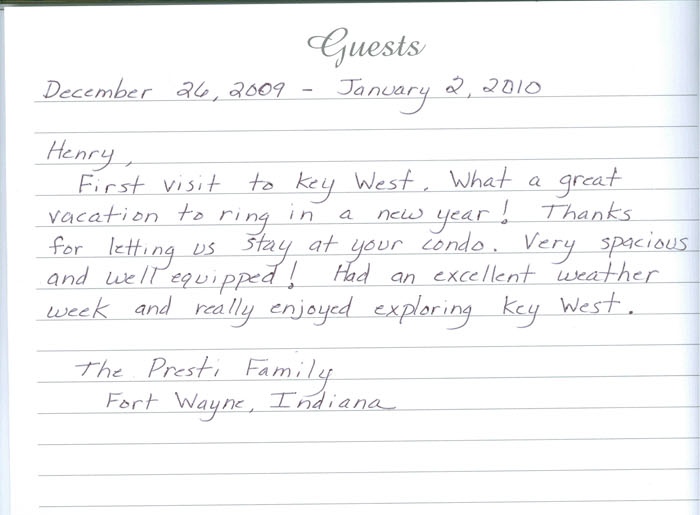 Guests
December 26, 2009 - January 2, 2010
Henry,
First visit to Key West. What a great
vacation to ring in a new year! Thanks
for letting us stay at your condo. Very spacious
and well equipped! Had an excellent weather
week and really enjoyed exploring Key West.
The Presti Family
Fort Wayne, Indiana